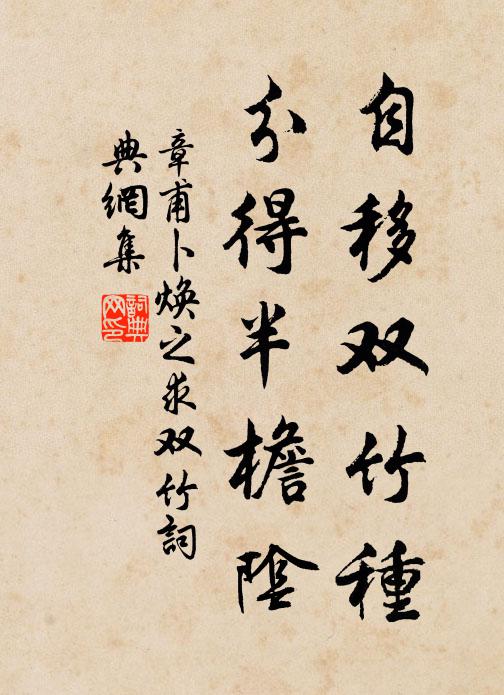 自移双竹種
分得半檐陰
章甫卜煥之求双竹詞
典網集
詞典網印